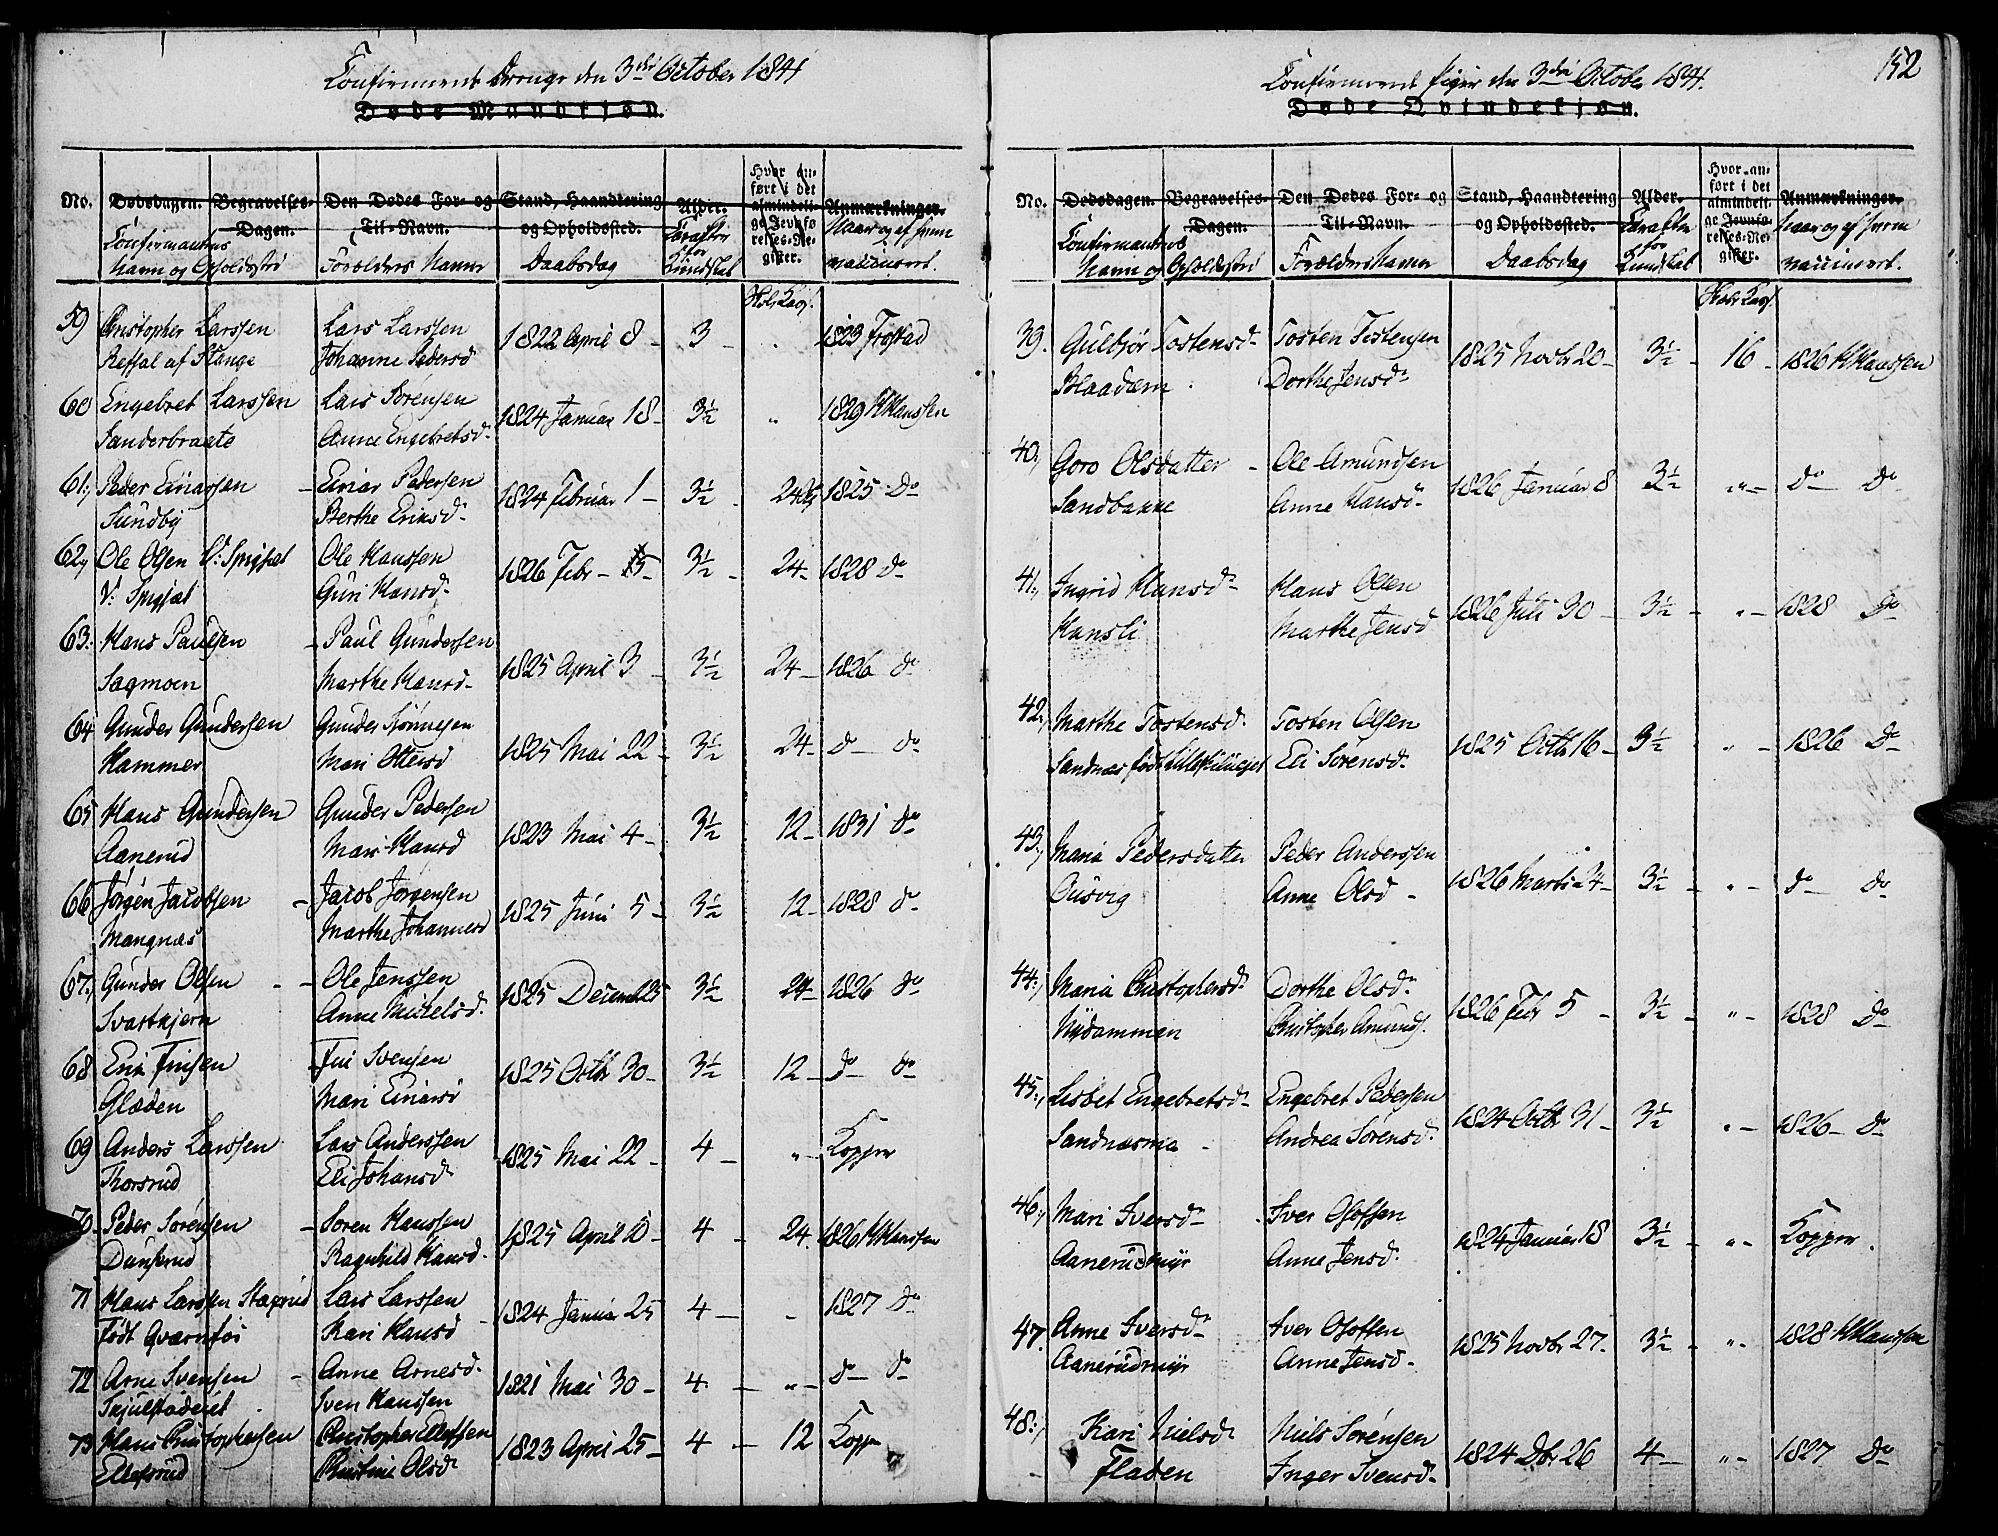 Confirmerede Drenge den 3die October 1841
Døde Mandkjøn.
No. Dødsdagen. Begravelses-Dagen. Den Dødes For- og Til-Navn. Stand, Haandtering og Opholdssted. Alder. Hvor anført i det almindelige Jevnførelses-Register. Anmærkninger.
Confirmantens Navn og Opholdssted Forældres Navne Daabsdag Caracter for Kundskab Naar og af hvem vaccineret.
59 Christopher Larssen Lars Larssen 1822 April 8 - 3 - 1823 Frostad
af Stange Johanne Pedersd
60 Engebret Larssen Lars Sørensen 1824 Januar 18 - 3½ " 1829 H Hanssen
Sanderbraate Anne Engebretsd.
61, Peder Einarssen - Einar Pedersen 1824 Februar 1 - 3½ - 24 1825 do
Sundby Berthe Eriksd.
62, Ole Olsen V. Spigset Ole Hanssen 1826 Febr - 5 - 3½ - 24 - 1828 do
V. Spigset Guri Hansd.
63. Hans Paulsen - Paul Gundersen 1825 April 3 - 3½ 24 - 1826 do
Sagmoen Marthe Hansd.
64 Gunder Gundersen Gunder Sjønnesen 1825 Mai 22 - 3½ 24 - do do
Hammer Mari Ottersd
65 Hans Gundersen Gunder Pedersen 1823 Mai 4 - 3½ 12 - 1831 do
Aanerud Mari Hansd
66 Jørgen Jacobsen - Jacob Jørgensen 1825 Juni 5 - 3½ 12 - 1828 do
Mangnæs Marthe Johannesd
67, Gunder Olsen - - Ole Jenssen 1825 Decemb 25 3½ 24 - 1826 do
Svartkjern Anne Mikelsd.
68 Erik Finsen - Fin Svensen 1825 Octb 30 - 3½ 12 - do do
Glæden Mari Einarsd
69 Anders Larssen Lars Anderssen 1825 Mai 22 - 4 - " - Kopper
Thorsrud Eli Johansd
70 Peder Sørensen - Søren Hanssen 1825 April 10 - 4 - 24. 1826 H Hanssen
Dunserud Ragnhild Hansd.
71 Hans Larssen Stagsrud Lars Larssen 1824 Januar 25 4 - - 1827 do
født Qværnstøi Kari Hansd -
72 Arne Svensen - Anne Arnesd. 1821 Mai 30 - 4 - " - do do
Skjulstaderiet Sven Hanssen
73 Hans Christophersen Christopher Ellefsen 1823 April 25 - 4 - 12 Kopp
Ellefsrud Christine Olsd
152
Confirmerede Piger den 3die October 1841.
Døde Qvindekjøn.
No. Dødsdagen. Begravelses-Dagen. Den Dødes For- og Til-Navn. Stand, Haandtering og Opholdssted. Alder. Hvor anført i det almindelige Jevnførelses-Register. Anmærkninger.
Confirmantens Navn og Opholdssted Forældres Navne Daabsdag Caracter for Kundskab Naar og af hvem vaccineret.
39. Gulbjør Tostensd. Tosten Tostensen 1825 Novbr 20 - 3½ - 16 - 1826 H Hanssen
Blaadæm Dorthe Jensd.
40, Goro Olsdatter - Ole Amundsen 1826 Januar 8 3½ " - do do
Sandbakke Anne Hansd.
41, Ingrid Hansd. Hans Olsen 1826 Juli 30 - 3½ - " - 1828 do
Hansli Marthe Jensd
42, Marthe Tostensd. Tosten Olsen 1825 Octb 16 - 3½ " - 1826 do
Sandnæs født Eli Sørensd.
43, Maria Pedersdatter Peder Anderssen 1826 Marts 24 - 3½ - " - do do
Ousvig Anne Olsd -
44, Maria Christophersd. Dorthe Olsd. 1826 Febr 5 - 3½ - " - 1828 do
Nydammen Christopher Amunds.
45, Lisbet Engebretsd. Engebret Pedersen 1824 Octb 31 - 3½ " - 1826 - do
Sandnæsmia - Andrea Sørensd.
46, Mari Iversd. Iver Olofsen 1824 Januar 18 3½ - " - Kopper
Aanerudmyr Anne Jensd.
47. Anne Iversd. Iver Olofsen 1825 Novbr 27. 3½ - " - 1828 H Hanssen
Aanerudmyr Anne Jensd.
48, Kari Nielsd. Niels Sørensen 1824 Dbr 26 4 - " - 1827 do
Fladen Inger Svensd.